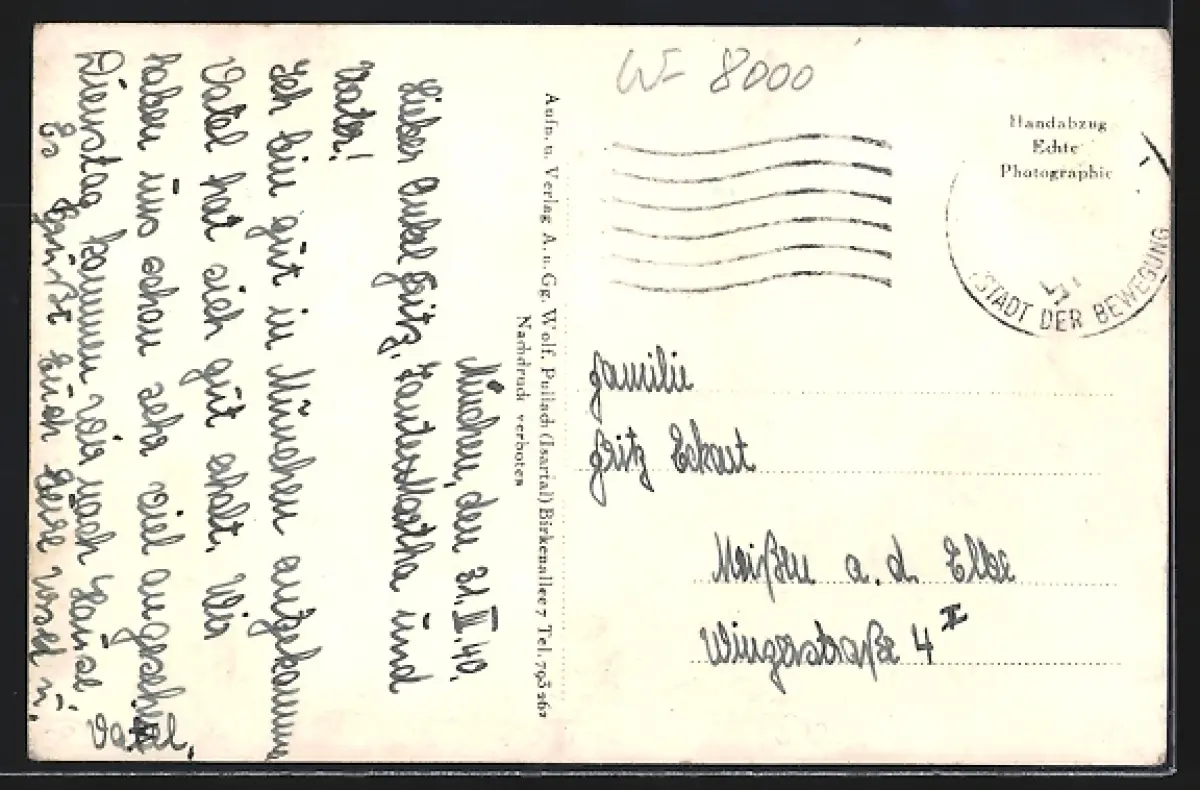 W- 8000
Handabzug
Echte
Photographie
STADT DER BEWEGUNG
Aufn. u. Verlag A. u. Gg. Wolf, Pullach (Isartal) Birkenallee 7 Tel. 795262
Nachdruck verboten
München, den 31. III. 40.
Lieber Onkel Fritz, Tante Martha und
Vater!
Ich bin gut in München angekommen
Vatel hat sich gut erholt. Wir
haben uns schon sehr viel angesehn
Dienstag kommen wir nach Hause
Es grüßt Euch Eure u.
Vatel.
Familie
Fritz Eckart
Meißen a. d. Elbe
Wingerstraße 4 II